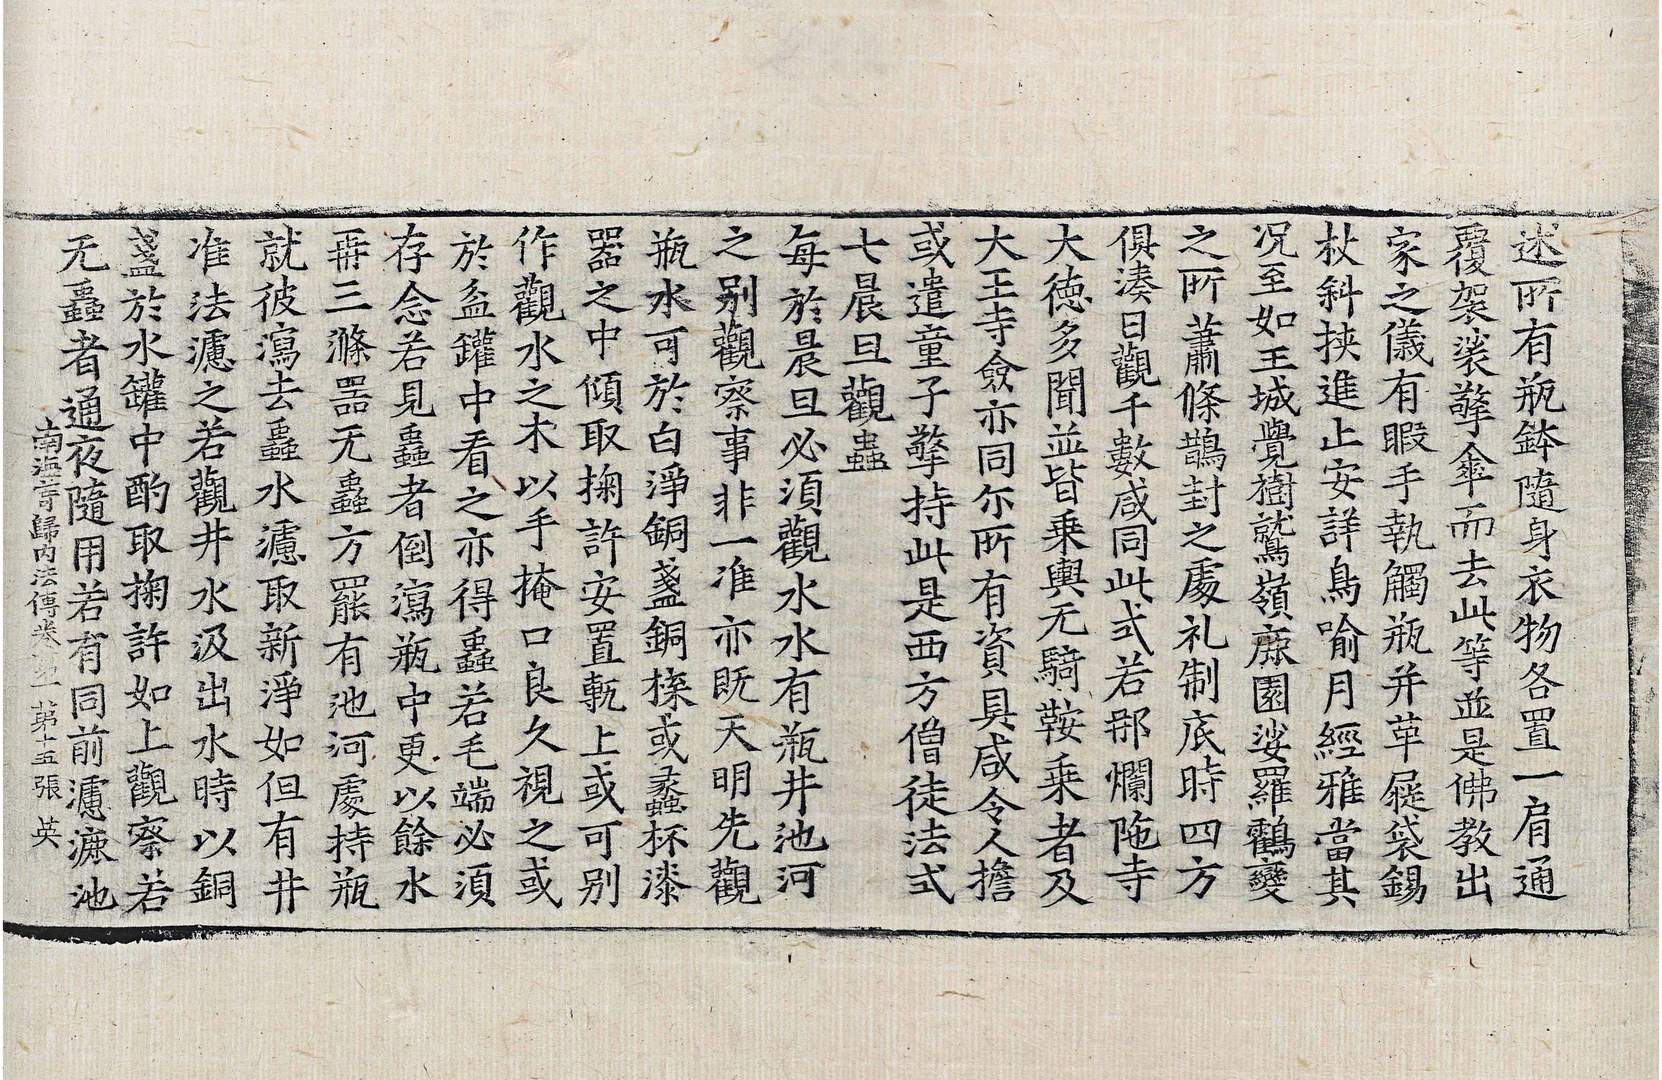 述所有瓶鉢隨身衣物各置一肩通
覆袈裟擎傘而去此等並是佛教出
家之儀有暇手執觸瓶并革屣袋錫
杖斜挾進止安詳鳥喻月經雅當其
况至如王城覺樹鷲嶺鹿園娑羅鶴變
之所蕭條鵲封之處礼制底時四方
俱湊日觀千數咸同此式若那爛陁寺
大德多聞並皆乗輿无騎鞍乗者及
大王寺僉亦同尔所有資具咸令人擔
或遣童子擎持此是西方僧徒法式
七晨旦觀蟲
每於晨旦必須觀水水有瓶井池河
之别觀察事非一准亦既天明先觀
瓶水可於白淨銅盞銅楪或蠡杯漆
器之中傾取掬許安置甎上或可别
作觀水之木以手掩口良久視之或
於盆罐中看之亦得蟲若毛端必須
存念若見蟲者倒瀉瓶中更以餘水
再三滌器无蟲方罷有池河處持瓶
就彼瀉去蟲水濾取新淨如但有井
准法濾之若觀井水汲出水時以銅
盞於水罐中酌取掬許如上觀察若
无蟲者通夜隨用若有同前濾漉池
南海寄歸內法傳卷第一 第十五張 英